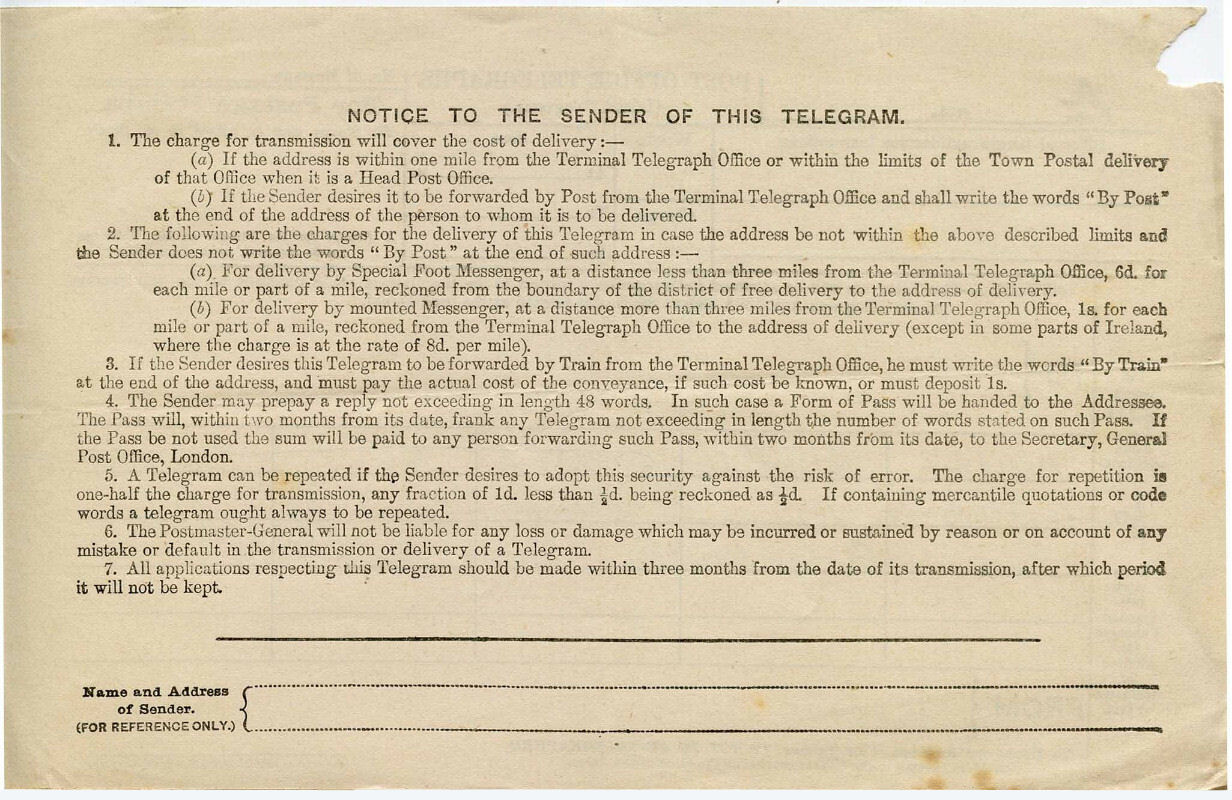 NOTICE TO THE SENDER OF THIS TELEGRAM.
1. The charge for transmission will cover the cost of delivery:—
(a) If the address is within one mile from the Terminal Telegraph Office or within the limits of the Town Postal delivery
of that Office when it is a Head Post Office.
(b) If the Sender desires it to be forwarded by Post from the Terminal Telegraph Office and shall write the words "By Post"
at the end of the address of the person to whom it is to be delivered.
2. The following are the charges for the delivery of this Telegram in case the address be not within the above described limits and
the Sender does not write the words "By Post" at the end of such address:—
(a) For delivery by Special Foot Messenger, at a distance less than three miles from the Terminal Telegraph Office, 6d. for
each mile or part of a mile, reckoned from the boundary of the district of free delivery to the address of delivery.
(b) For delivery by mounted Messenger, at a distance more than three miles from the Terminal Telegraph Office, 1s. for each
mile or part of a mile, reckoned from the Terminal Telegraph Office to the address of delivery (except in some parts of Ireland,
where the charge is at the rate of 8d. per mile).
3. If the Sender desires this Telegram to be forwarded by Train from the Terminal Telegraph Office, he must write the words "By Train"
at the end of the address, and must pay the actual cost of the conveyance, if such cost be known, or must deposit 1s.
4. The Sender may prepay a reply not exceeding in length 48 words. In such case a Form of Pass will be handed to the Addressee.
The Pass will, within two months from its date, frank any Telegram not exceeding in length the number of words stated on such Pass. If
the Pass be not used the sum will be paid to any person forwarding such Pass, within two months from its date, to the Secretary, General
Post Office, London.
5. A Telegram can be repeated if the Sender desires to adopt this security against the risk of error. The charge for repetition is
one-half the charge for transmission, any fraction of 1d. less than ½d. being reckoned as ½d. If containing mercantile quotations or code
words a telegram ought always to be repeated.
6. The Postmaster-General will not be liable for any loss or damage which may be incurred or sustained by reason or on account of any
mistake or default in the transmission or delivery of a Telegram.
7. All applications respecting this Telegram should be made within three months from the date of its transmission, after which period
it will not be kept.
Name and Address
of Sender.
(FOR REFERENCE ONLY.)